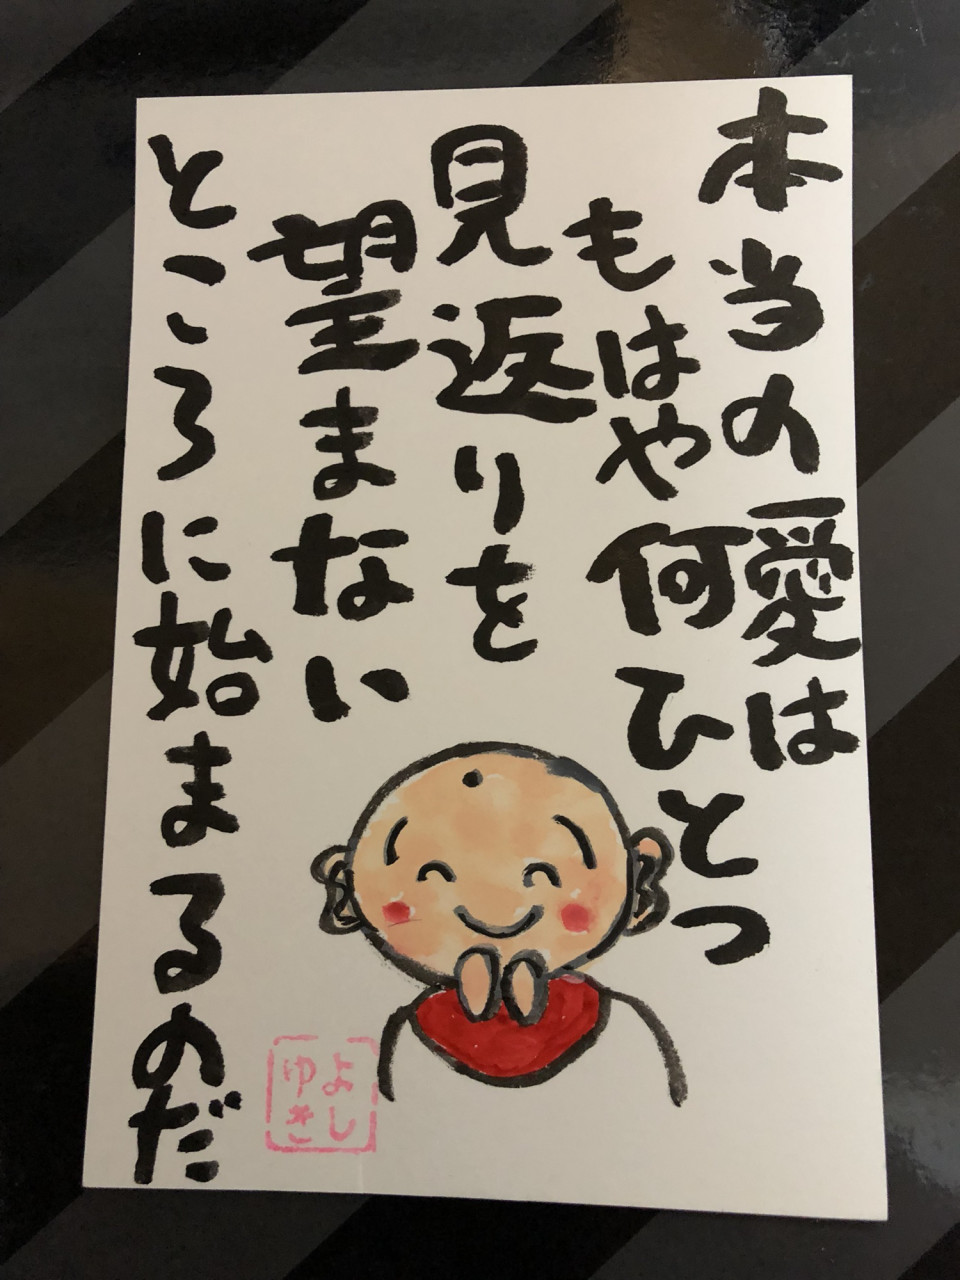 本当の愛は
もはや何ひとつ
見返りを
望まない
ところに始まるのだ
よし
ゆき